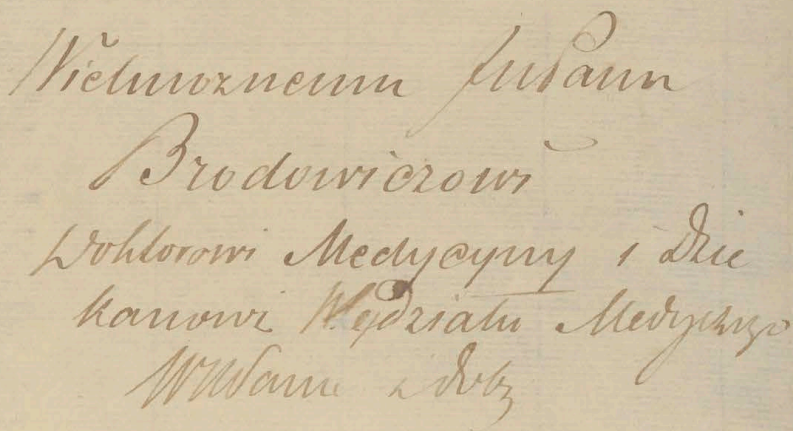 Wielmoznemu JmPanu
Brodowiczowi
Doktorowi Medycyny i Dzie
kanowi Wydziału Medyczngo